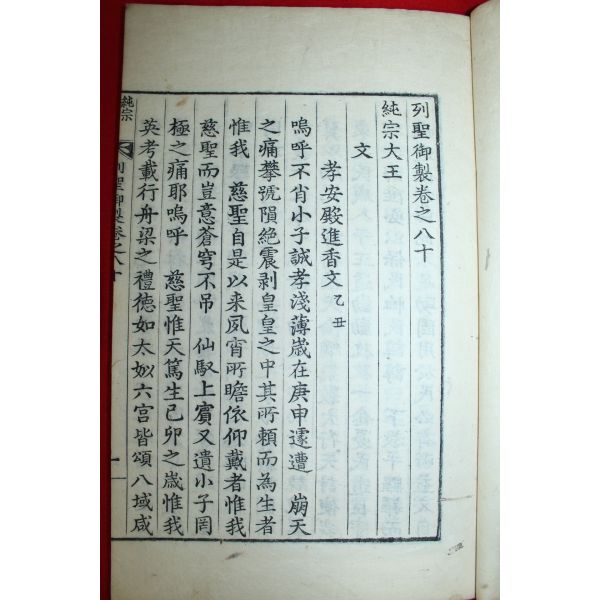 列聖御製卷之八十
純宗大王
文
孝安殿進香文 乙丑
嗚呼不肖小子誠孝淺薄歲在庚申遽遭 崩天
之痛攀號隕絶震剥皇皇之中其所賴而為生者
惟我 慈聖自是以来夙宵所瞻依仰戴者惟我
慈聖而豈意蒼穹不吊 仙馭上賓又遺小子罔
極之痛耶嗚呼 慈聖惟天篤生已卯之歲惟我
英考載行舟梁之禮德如太姒六宮皆頌八域咸
純宗
列聖御製卷之八十
一